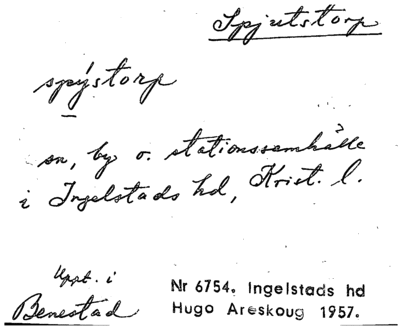 Spjutstorp
spýstorp
sn, by o. stationssamhälle
i Ingelstads hd, Krist. l.
Uppt. i
Benestad
Nr 6754. Ingelstads hd
Hugo Areskoug 1957.